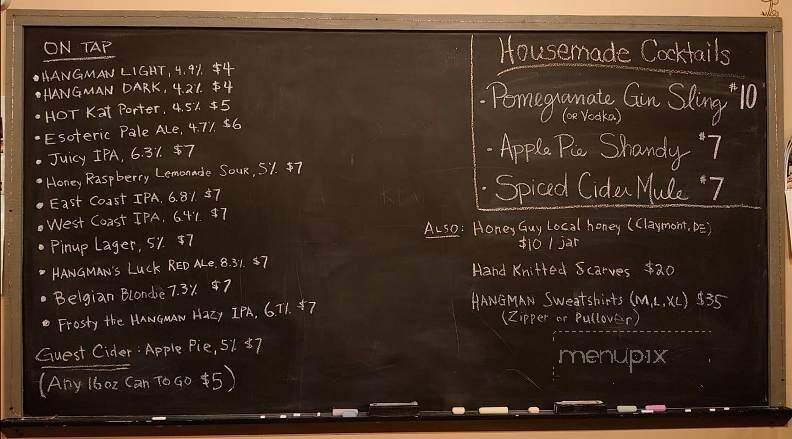 ON TAP
• HANGMAN LIGHT, 4.9% $4
• HANGMAN DARK, 4.2% $4
• HOT Kat Porter, 4.5% $5
• Esoteric Pale Ale, 4.7% $6
• Juicy IPA, 6.3% $7
• Honey Raspberry Lemonade Sour, 5% $7
• East Coast IPA, 6.8% $7
• West Coast IPA, 6.4% $7
• Pinup Lager, 5% $7
• HANGMAN'S Luck RED Ale, 8.3% $7
• Belgian Blonde 7.3% $7
• Frosty the HANGMAN Hazy IPA, 6.7% $7
Guest Cider: Apple Pie, 5% $7
(Any 16oz Can To Go $5)
Housemade Cocktails
• Pomegranate Gin Sling $10
(or Vodka)
• Apple Pie Shandy $7
• Spiced Cider Mule $7
Also: Honey Guy Local honey (Claymont, DE)
$10 / jar
Hand Knitted Scarves $20
HANGMAN Sweatshirts (M, L, XL) $35
(Zipper or Pullover)
menupix